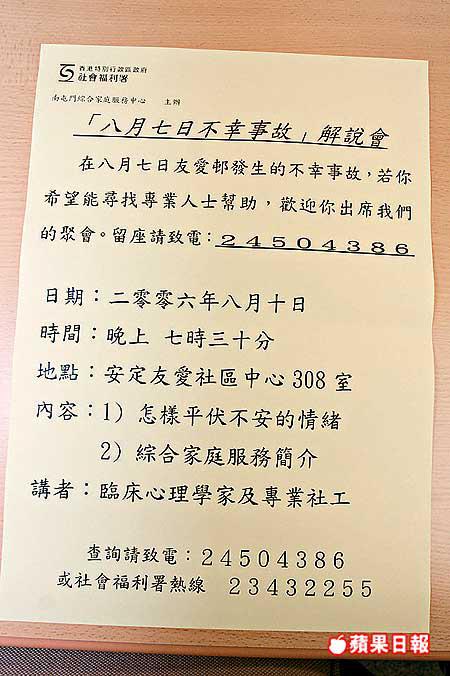 香港特別行政區政府
社會福利署
南屯門綜合家庭服務中心 主辦
「八月七日不幸事故」解說會
在八月七日友愛邨發生的不幸事故，若你
希望能尋找專業人士幫助，歡迎你出席我們
的聚會。留座請致電：24504386
日期：二零零六年八月十日
時間：晚上 七時三十分
地點：安定友愛社區中心 308 室
內容：1) 怎樣平伏不安的情緒
2) 綜合家庭服務簡介
講者：臨床心理學家及專業社工
查詢請致電：24504386
或社會福利署熱線 23432255
蘋果日報